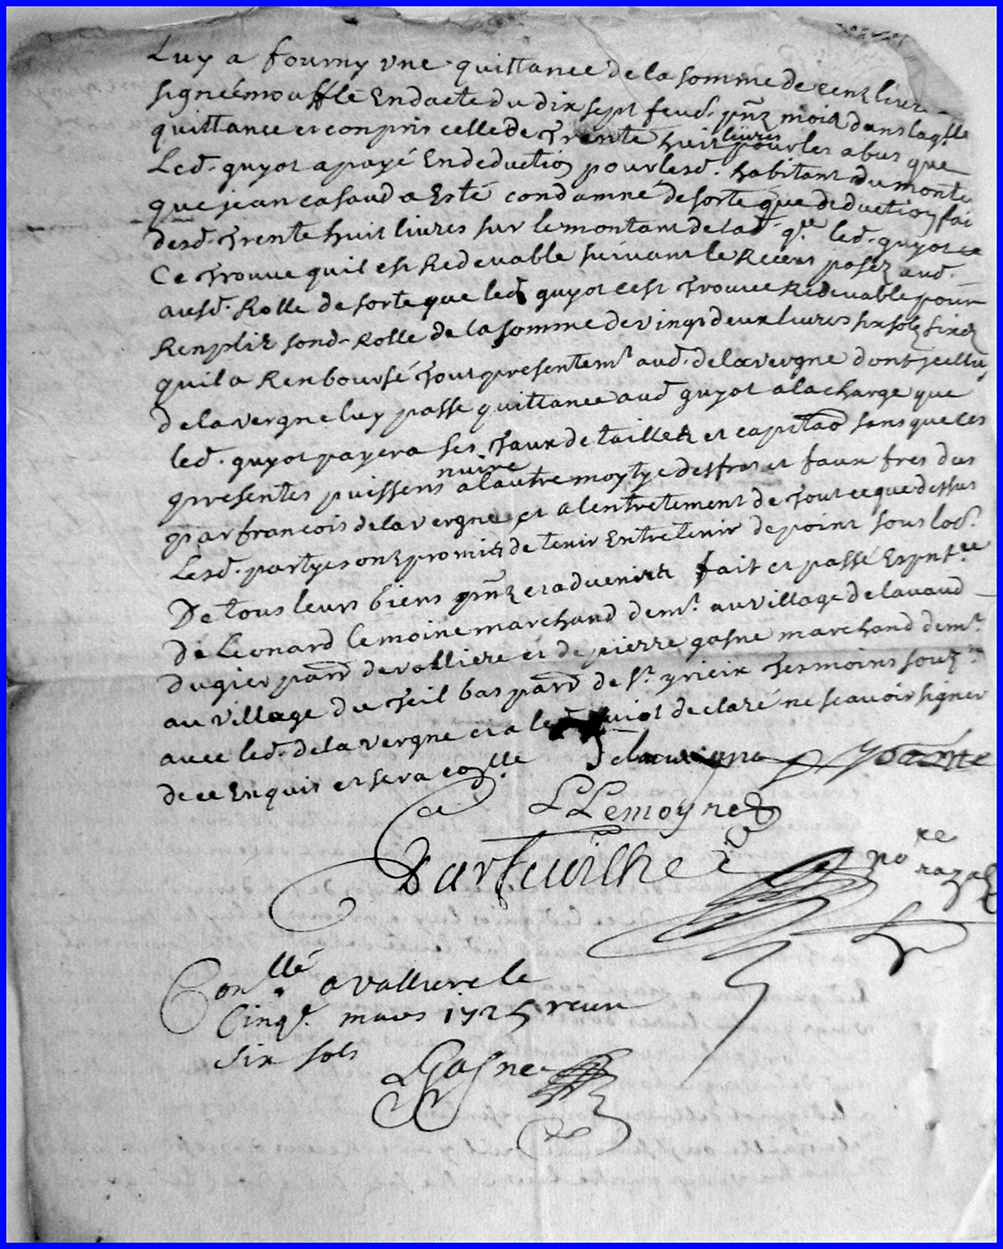 Luy a fourny une quittance de la somme de cent livres
signée mouffle En dacte du dix sept feud. pñz mois dans laqlle
quittance et conpris celle de Trente huit livres pour les abus que
Led. guyot a payé En deduction pour lesd. habitant du monte
que jean casaud a Esté condamné de sorte que deduction fai
desd. Trente huit livres sur le montant de lad. q.ce led. guyot ce
Ce Trouve quil est Redevable suivant le Recens posez aud.
ausd. Rolle de sorte que led guyot cest Trouvé Redevable pour
Renplir sond. Rolle de la somme de vingt deux livres six sols six d
quil a Renboursé Tout presentem.t aud. delavergne dont jcelluy
delavergne luy passe quittance aud guyot a la charge que
led. guyot payera ses Taux de tailles et capitaõ sans que les
presentes puissent nuire a lautre moytye des fras et faux fres dus
par francois delavergne et a lentretement de Tout ce que dessus
Lesd. partyes onz promis de tenir Entretenir de point sous lod.
De tous leurs biens pñz et advenirs fait et passé Es pnt.ce
de Leonard Lemoine marchand dem.t au village de lavaud
dugier parr de valliere et de pierre gasne marchand dem.t
au village du Teil bas parr de s.t yrieix Tesmoins souz.nes
avec led. delavergne et a led guiot declaré ne scavoir signer
de ce Enquis et sera co.lle Delavergne
L Lemoyne
Dartuilhe no.re royal
Con.llé a valliere le
Cinq.e mars 1725 receu
six sols
Gasne